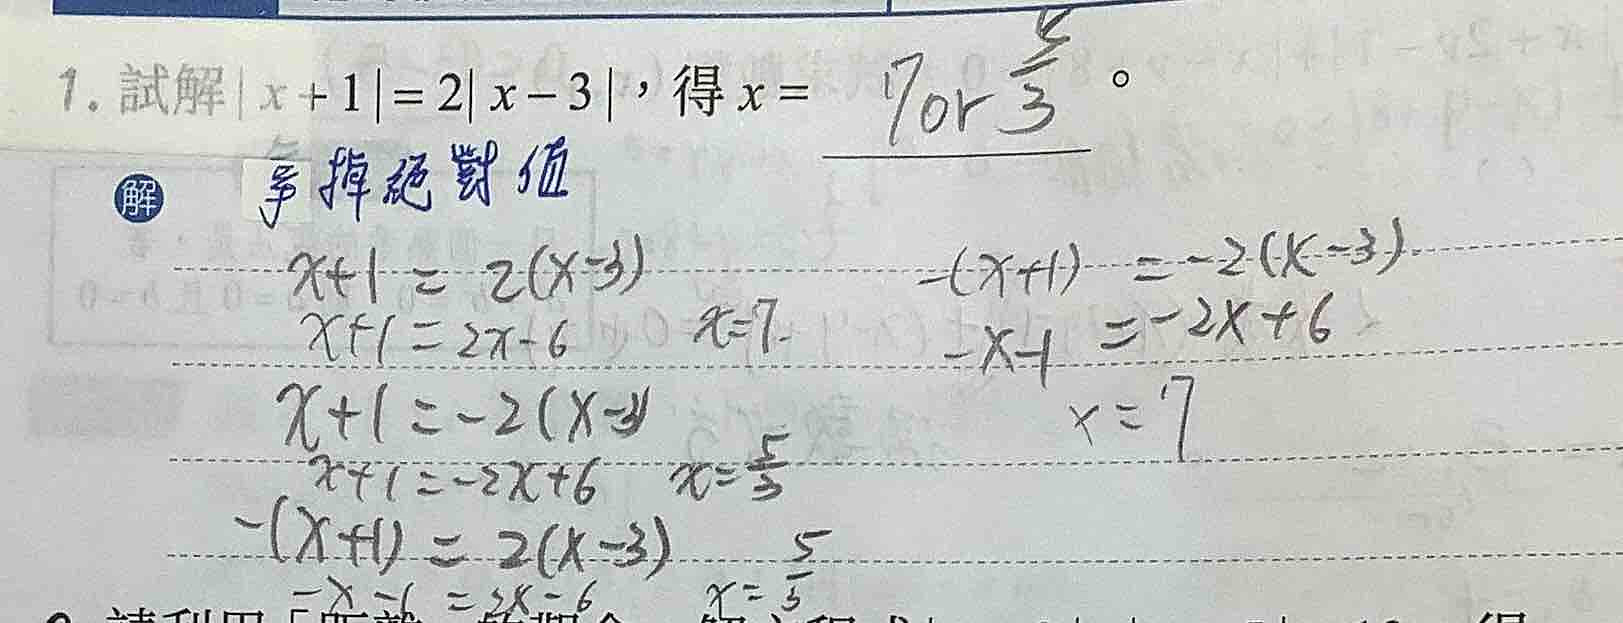 1. 試解| x + 1| = 2| x − 3 |，得 x = 7 or 5/3 。
解 掉絕對值
x+1 = 2(x-3)
x+1 = 2x-6 x=7
x+1 = -2(x-3)
x+1 = -2x+6 x=5/3
-(x+1) = 2(x-3)
-x-1 = 2x-6 x=5/3
-(x+1) = -2(x-3)
-x-1 = -2x+6
x=7